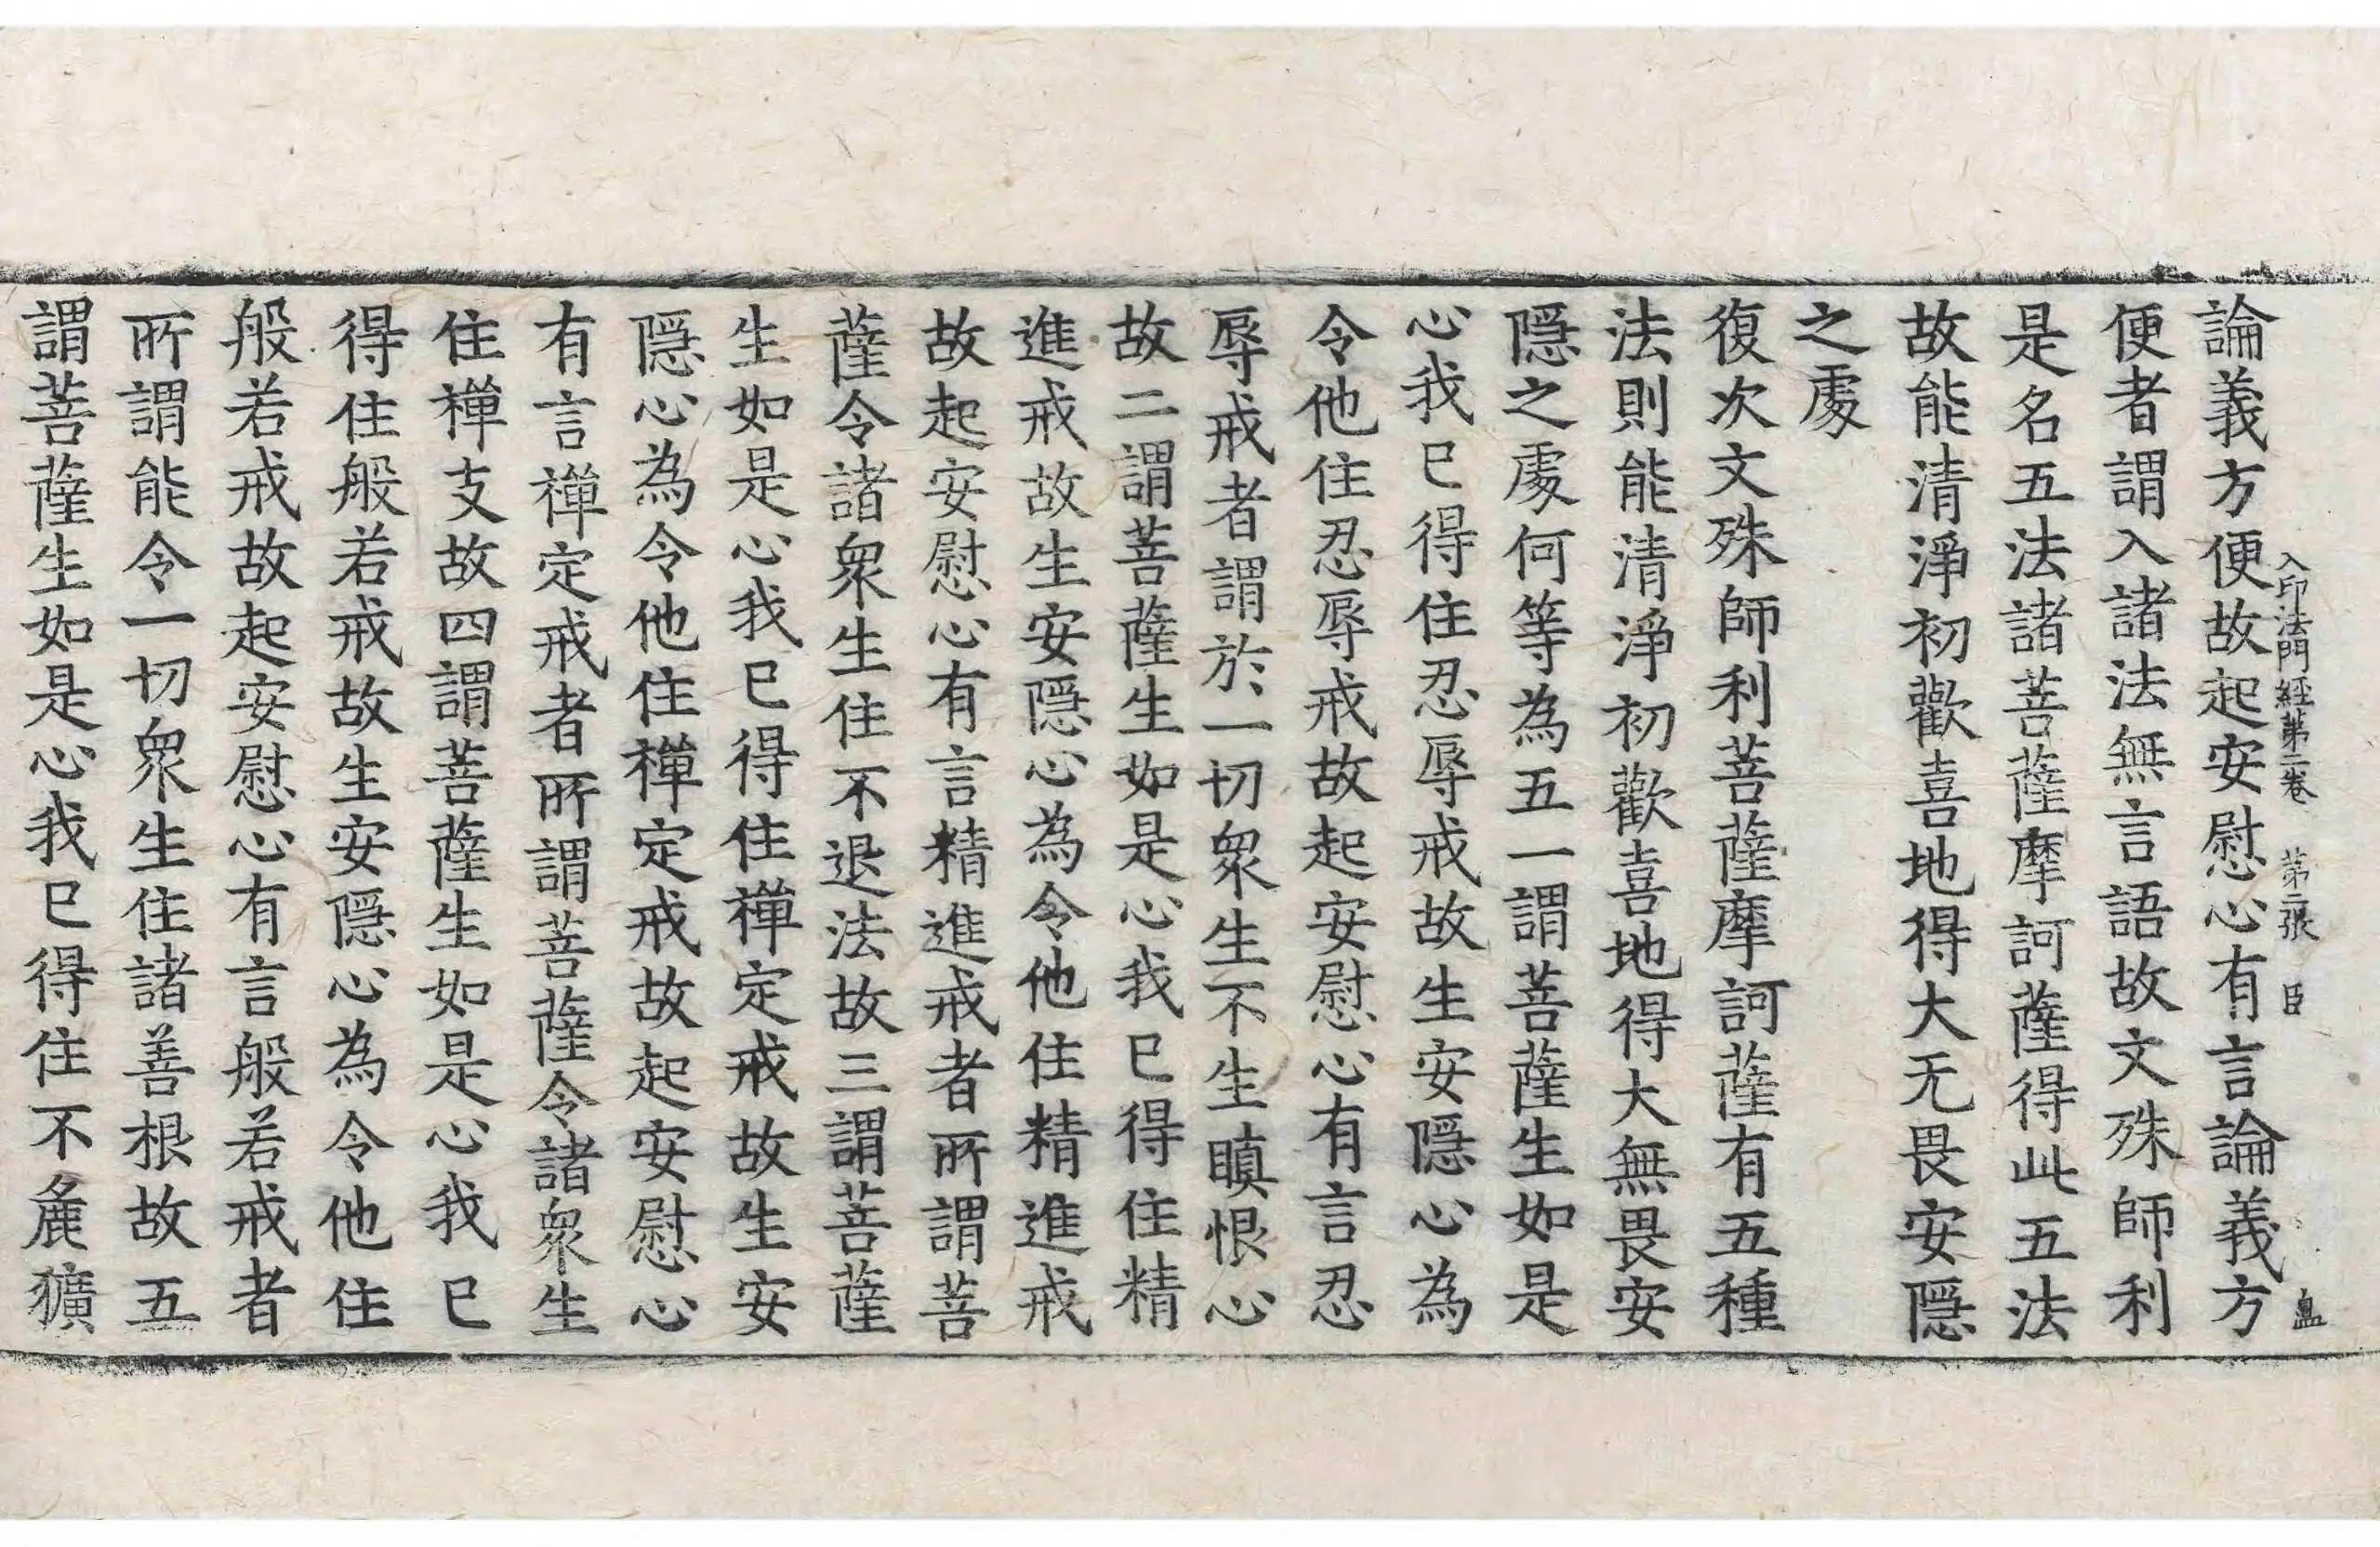 入印法門經第二卷　第二張　臣
論義方便故起安慰心有言論義方
便者謂入諸法無言語故文殊師利
是名五法諸菩薩摩訶薩得此五法
故能清淨初歡喜地得大无畏安隱
之處
復次文殊師利菩薩摩訶薩有五種
法則能清淨初歡喜地得大無畏安
隱之處何等為五一謂菩薩生如是
心我已得住忍辱戒故生安隱心為
令他住忍辱戒故起安慰心有言忍
辱戒者謂於一切衆生不生瞋恨心
故二謂菩薩生如是心我已得住精
進戒故生安隱心為令他住精進戒
故起安慰心有言精進戒者所謂菩
薩令諸衆生住不退法故三謂菩薩
生如是心我已得住禪定戒故生安
隱心為令他住禪定戒故起安慰心
有言禪定戒者所謂菩薩令諸衆生
住禪支故四謂菩薩生如是心我已
得住般若戒故生安隱心為令他住
般若戒故起安慰心有言般若戒者
所謂能令一切衆生住諸善根故五
謂菩薩生如是心我已得住不麁獷